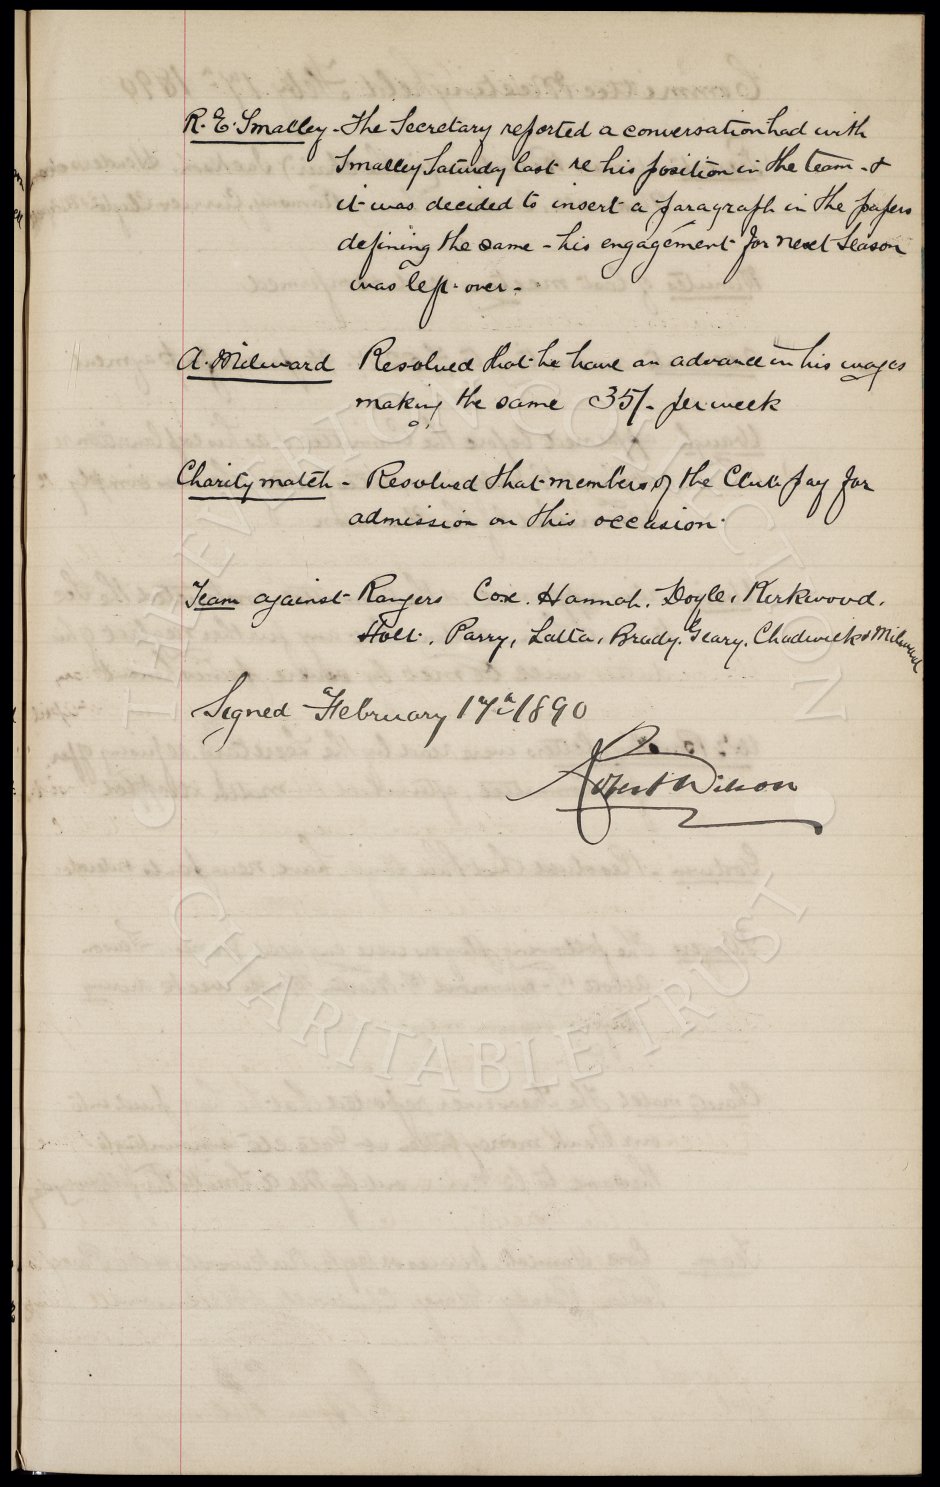 R. E. Smalley - The Secretary reported a conversation had with
Smalley Saturday last re his position in the team - &
it was decided to insert a paragraph in the papers
defining the same - his engagement for next Season
was left over -
A. Milward Resolved that he have an advance in his wages
making the same 35/- per week
Charity match - Resolved that members of the Club pay for
admission on this occasion.
Team against Rangers Cox. Hannah. Doyle, Kirkwood.
Holt. Parry, Latta, Brady. Geary. Chadwick & Milward
Signed February 17th 1890
THE EVERTON COLLECTION
CHARITABLE TRUST